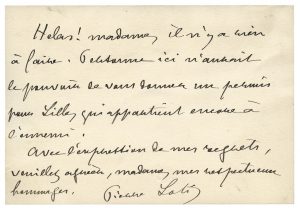 Hélas! madame, il n'y a rien
à faire. Personne ici n'aurait
le pouvoir de vous donner un permis
pour Lille, qui appartient encore à
l'ennemi.
Avec l'expression de mes regrets,
veuillez agréer, madame, mes respectueux
hommages. Pierre Loti